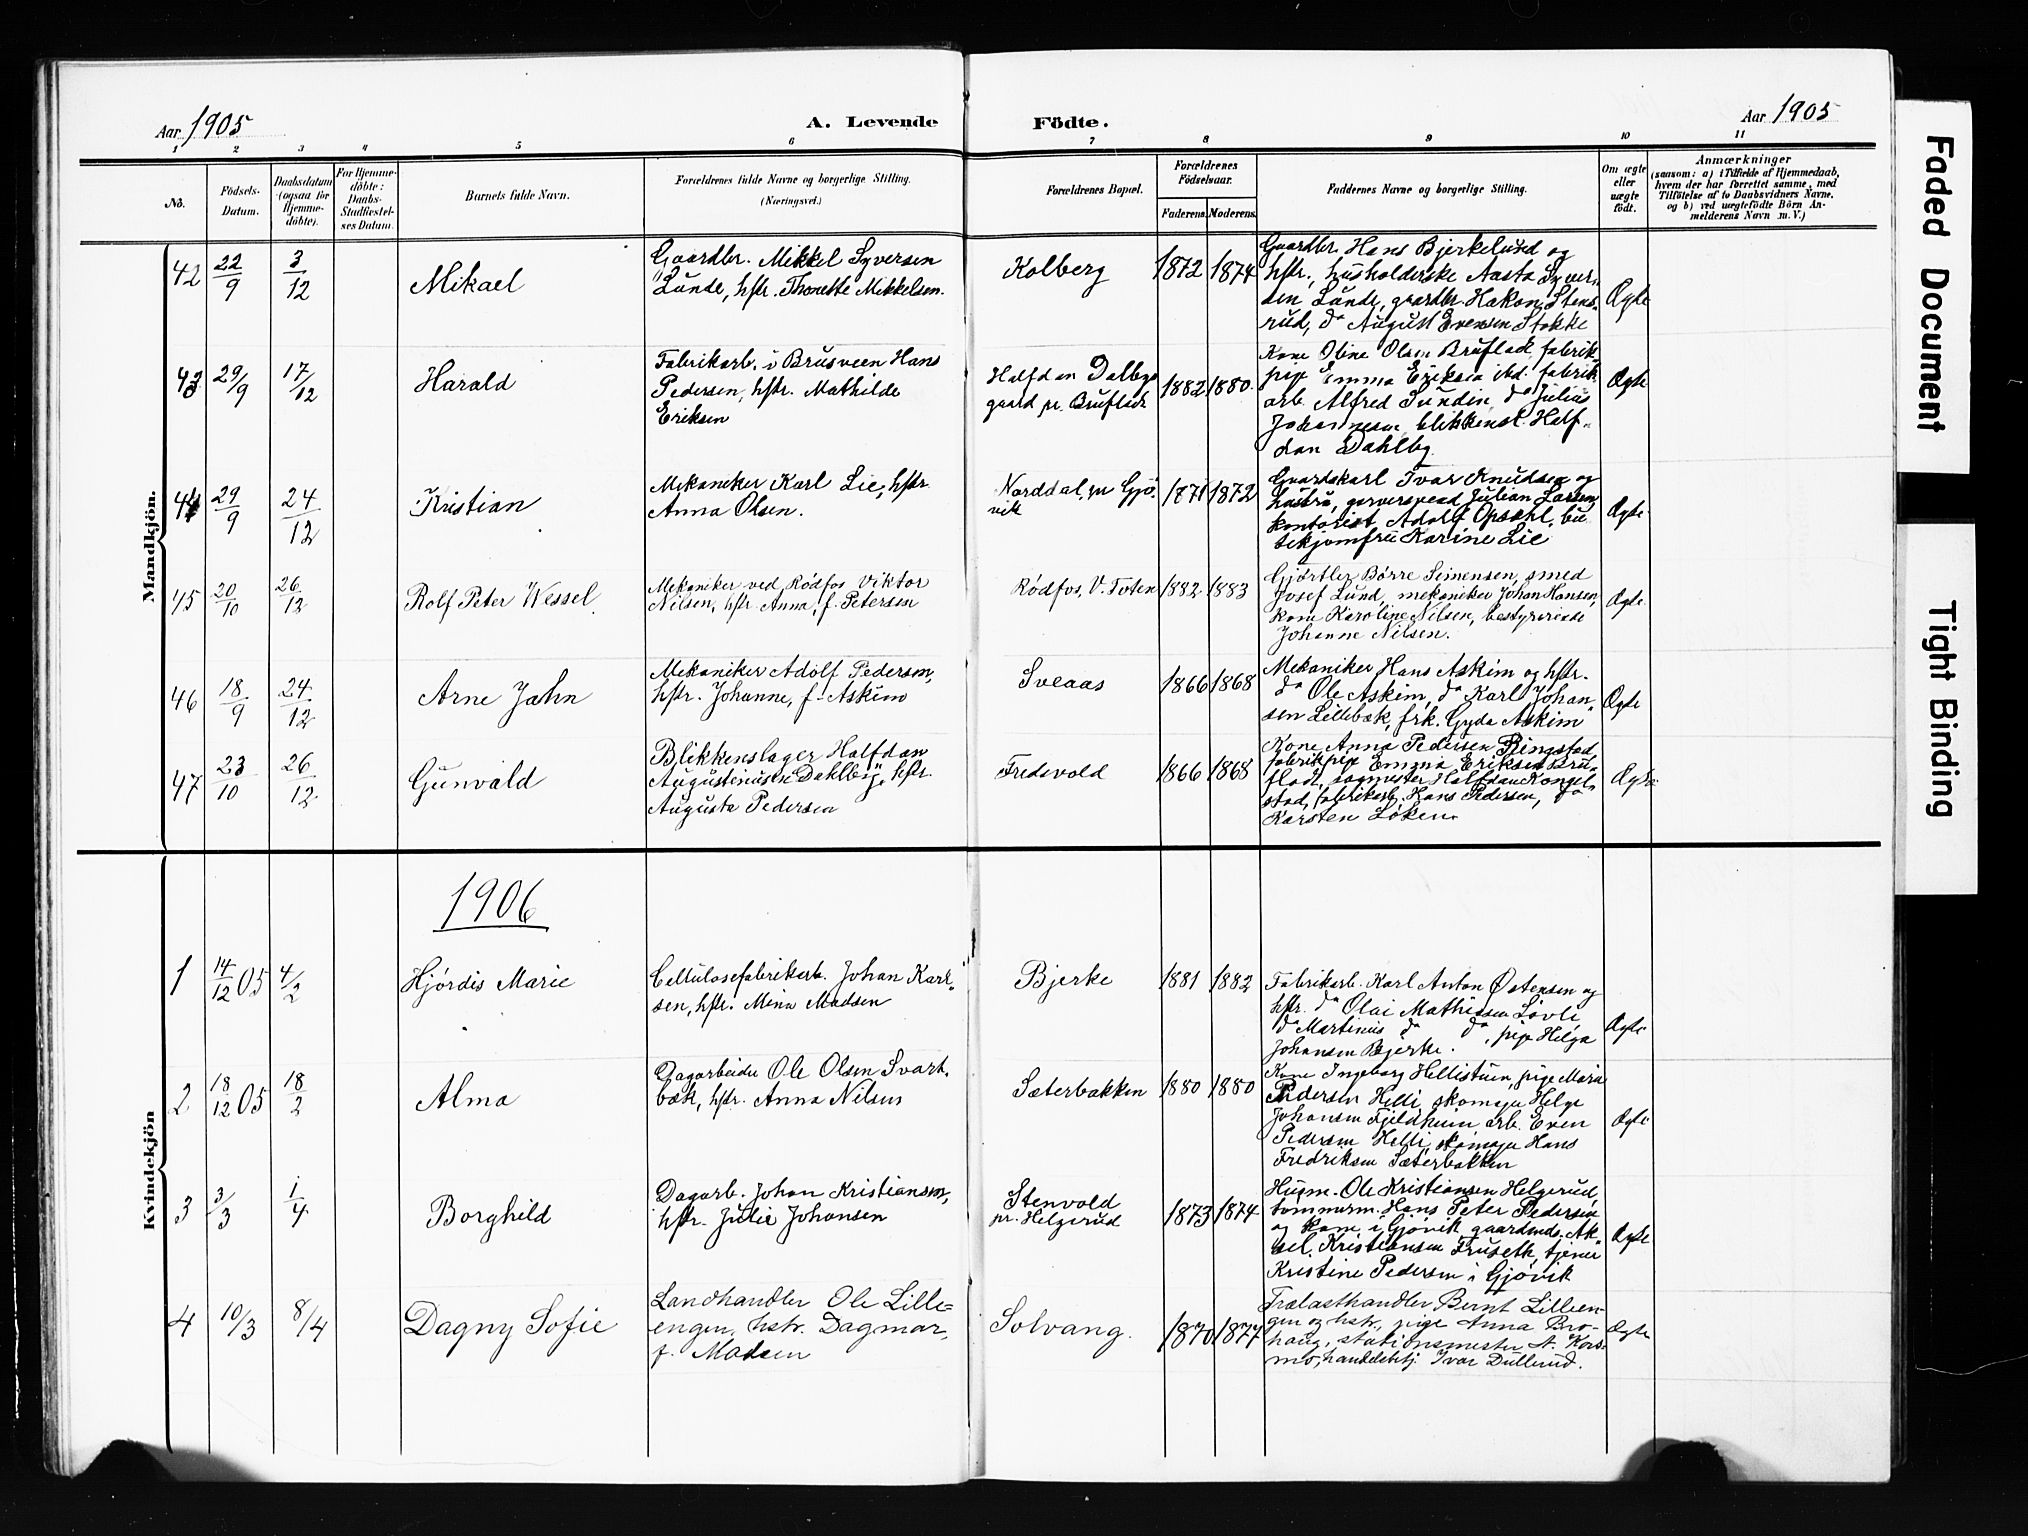 Aar 1905 A. Levende Födte. Aar 1905
1 2 3 4 5 6 7 8 9 10 11
No. Födsels-Datum. Daabsdatum (ogsaa for Hjemme-döbte). For Hjemme-döbte: Daabs-Stadfæstel-ses Datum. Barnets fulde Navn. Forældrenes fulde Navne og borgerlige Stilling. (Næringsvei.) Forældrenes Bopæl. Forældrenes Födselsaar. Faderens. Moderens. Faddernes Navne og borgerlige Stilling. Om ægte eller uægte födt. Anmærkninger (saasom: a) i Tilfælde af Hjemmedaab, hvem der har forrettet samme, med Tilföielse af to Daabsvidners Navne, og b) ved uægtefödte Börn Anmelderens Navn m. V.)
Mandkjön.
42 22/9 3/12 Mikael
Gaardbr. Mikkel Syversen
Lunde, hstr. Thonette Mikkelsen.
Kolberg 1872 1874
Gaardbr. Hans Bjerkelund og
hstr., husholderske Aasta Syver-
sen Lunde, gaardbr. Hakon Stens-
rud, do August Evensen Stokke
Ægte
43 29/9 17/12 Harald
Fabrikarb. i Brusveen Hans
Pedersen, hstr. Mathilde
Eriksen
Halfdan Dalbys
gaard pr. Bruflade
1882 1880.
Kone Oline Olsen Bruflade, fabrik-
pige Emma Eriksen ibd. fabrik-
arb. Alfred Sunden, do Julius
Johannesen, blikkensl. Half-
dan Dahlby.
Ægte
44 29/9 24/12 Kristian
Mekaniker Karl Lie, hstr
Anna Olsen.
Norddal, pr Gjø-
vik
1871 1872
Gaardskarl Ivar Knudsen og
hustru, garversvend Julian Larsen
kontorist Adolf Opsahl, bu-
tikjomfru Karine Lie
Ægte
45 20/10 26/12 Rolf Peter Wessel.
Mekaniker ved Rødfos Viktor
Nilsen, hstr. Anna, f. Petersen
Rødfos, V. Toten 1882 1883
Gjørtler Børre Simensen, smed
Josef Lund, mekaniker Johan Hansen,
kone Karoline Nilsen, bestyrerinde
Johanne Nilsen.
Ægte
46 18/9 24/12 Arne Jahn
Mekaniker Adolf Pedersen,
hstr. Johanne, f. Askim
Sveaas 1866 1868
Mekaniker Hans Askim og hstr.
do Ole Askim, do Karl Johan-
sen Lillebæk, frk. Gyda Askim
Ægte
47 23/10 26/12 Gunvald
Blikkenslager Halfdan
Augustinusen Dahlby, hstr.
Augusta Pedersen
Fredevold 1866 1868
Kone Anna Pedersen Ringstad,
fabrikpige Emma Eriksen Bru-
flad, sagmester Halfdan Kongel-
stad, fabrikarb. Hans Pedersen, do
Karsten Løken.
Ægte
1906
Kvindekjön
1 14/12 05 4/2 Hjørdis Marie
Cellulosefabrikarb. Johan Karl-
sen, hstr. Mina Madsen
Bjerke 1881 1882
Fabrikarb. Karl Anton Østensen og
hstr. do Olai Mathiesen Løvli
do Martinus do do, pige Helga
Johansen Bjerke.
Ægte
2 18/12 05 18/2 Alma
Dagarbeider Ole Olsen Svart-
bæk, hstr. Anna Nilsen
Sæterbakken 1880 1880
Kone Ingeborg Hellistuen, pige Maria
Pedersen Helli, skomager Helge
Johansen Fjeldheim, arb. Even
Pedersen Helli, skomager Hans
Fredriksen Sæterbakken
Ægte
3 3/3 1/4 Borghild
Dagarb. Johan Kristiansen,
hstr. Julie Johansen
Stenvold
pr. Helgerud
1873 1874
Husm. Ole Kristiansen Helgerud,
tømmerm. Hans Peter Pedersen
og kone i Gjøvik gaardmds. Ak-
sel Kristiansen Fruseth, tjener
Kristine Pedersen i Gjøvik
Ægte
4 10/3 8/4 Dagny Sofie
Landhandler Ole Lille-
engen, hstr. Dagmar,
f. Madsen
Solvang. 1870 1877
Trælasthandler Bernt Lilleen-
gen og hstr., pige Anna Bro-
haug, stationsmester A. Kors-
mo, handelsbtj. Ivar Dullerud.
Ægte
Faded Document
Tight Binding